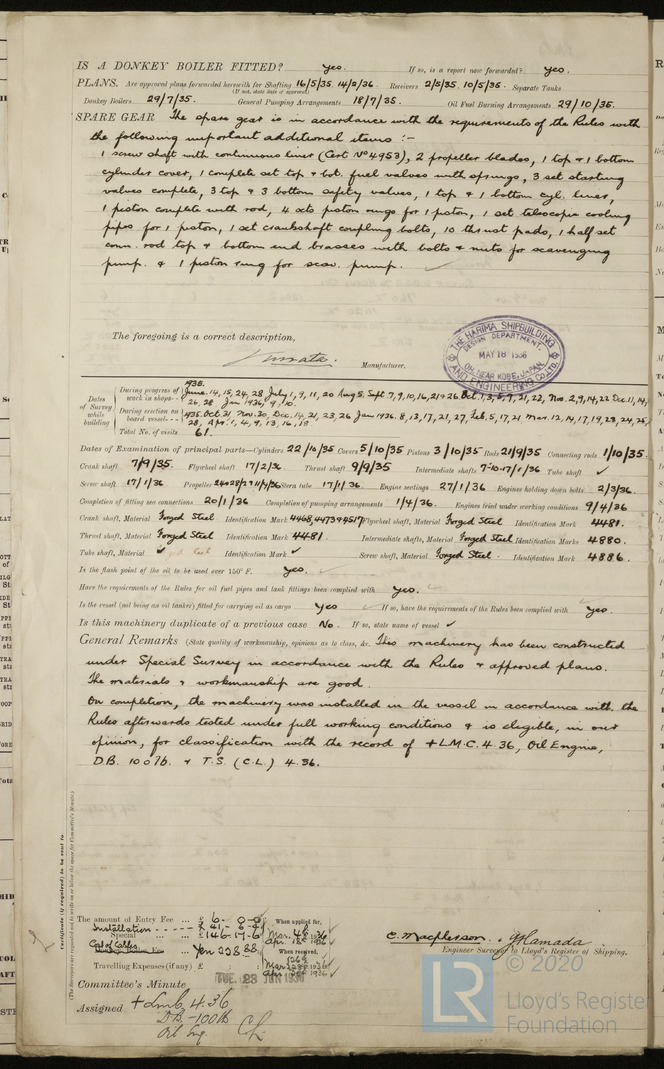 IS A DONKEY BOILER FITTED? yes. If so, is a report now forwarded? yes.
PLANS. Are approved plans forwarded herewith for Shafting 16/5/35. 14/2/36. Receivers 2/5/35. 10/5/35. Separate Tanks
(If not, state date of approval)
Donkey Boilers 29/7/35. General Pumping Arrangements 18/7/35. Oil Fuel Burning Arrangements 29/10/35.
SPARE GEAR The spare gear is in accordance with the requirements of the Rules with
the following important additional items :-
1 screw shaft with continuous liner (Cert No 4953), 2 propeller blades, 1 top & 1 bottom
cylinder cover, 1 complete set top & bot. fuel valves with springs, 3 set starting
valves complete, 3 top & 3 bottom safety valves, 1 top & 1 bottom cyl. liner,
1 piston complete with rod, 4 sets piston rings for 1 piston, 1 set telescopic cooling
pipes for 1 piston, 1 set crankshaft coupling bolts, 10 thrust pads, 1 half set
conn. rod top & bottom end brasses with bolts & nuts for scavenging
pump. & 1 piston ring for scav. pump.
The foregoing is a correct description,
Manufacturer.
THE HARIMA SHIPBUILDING AND ENGINEERING CO. LTD.
DESIGN DEPARTMENT
MAY 18 1936
OH, NEAR KOBE, JAPAN
Dates of Survey while building
During progress of work in shops - - 1935. June 14, 15, 24, 28 July 1, 9, 11, 20 Aug 5. Sept 7, 9, 10, 16, 21 & 26 Oct. 1, 3, 5, 7, 21, 22, Nov. 2, 9, 14, 22 Dec. 11, 14,
26, 28 Jan 1936, 9, 10.
During erection on board vessel - - - 1935. Oct. 31 Nov. 30, Dec. 14, 21, 23, 26 Jan 1936. 8, 13, 17, 21, 27, Feb. 5, 17, 21 Mar. 12, 14, 17, 19, 23, 24, 25,
28, Apr. 1, 4, 9, 13, 16, 18
Total No. of visits 61.
Dates of Examination of principal parts—Cylinders 22/10/35 Covers 5/10/35 Pistons 3/10/35 Rods 21/9/35 Connecting rods 1/10/35.
Crank shaft 7/9/35. Flywheel shaft 17/2/36. Thrust shaft 9/9/35 Intermediate shafts 7-10-17/1/36 Tube shaft ✓
Screw shaft 17/1/36 Propeller Stern tube 17/1/36 Engine seatings 27/1/36 Engines holding down bolts 2/3/36.
Completion of fitting sea connections 20/1/36 Completion of pumping arrangements 1/4/36. Engines tried under working conditions 9/4/36
Crank shaft, Material Forged Steel Identification Mark 4468, 4473 & 4517 Flywheel shaft, Material Forged Steel Identification Mark 4481.
Thrust shaft, Material Forged Steel Identification Mark 4481 Intermediate shafts, Material Forged Steel Identification Marks 4880.
Tube shaft, Material ✓ Identification Mark ✓ Screw shaft, Material Forged Steel. Identification Mark 4886.
Is the flash point of the oil to be used over 150° F. yes.
Have the requirements of the Rules for oil fuel pipes and tank fittings been complied with yes.
Is the vessel (not being an oil tanker) fitted for carrying oil as cargo yes If so, have the requirements of the Rules been complied with yes.
Is this machinery duplicate of a previous case No. If so, state name of vessel ✓
General Remarks (State quality of workmanship, opinions as to class, &c. This machinery has been constructed
under Special Survey in accordance with the Rules & approved plans.
The materials & workmanship are good.
On completion, the machinery was installed in the vessel in accordance with the
Rules afterwards tested under full working conditions & is eligible, in our
opinion, for classification with the record of +LMC. 4.36, Oil Engine,
D.B. 100 lb. & T.S. (C.L.) 4.36.
Certificate (if required) to be sent to
(The Surveyors are requested not to write on or below the space for Committee's Minute.)
The amount of Entry Fee ... £ 6 - 0 - 0
Installation - - - - £ 41 -
Special ... ... £ 146 - 17 - 6
Yen 228.88
Travelling Expenses (if any) £
When applied for,
When received,
C. Macpherson. Y. Hamada.
Engineer Surveyor to Lloyd's Register of Shipping.
Committee's Minute TUE. 23 JUN 1936
Assigned + Lmb, 4.36
D.B. - 100 lb
Oil Eng.
LR © 2020
Lloyd's Register
Foundation